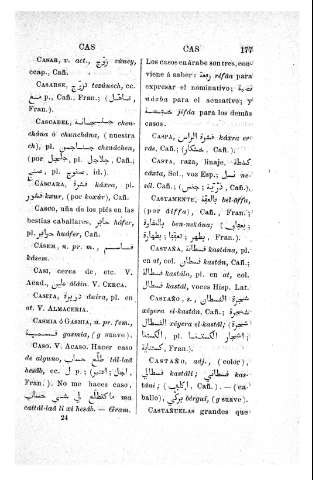 CAS
CAS
177
CASAR, v. act., زوّج záuey,
ccap., Cañ.
CASARSE, تزوّج tezáuech, cc.
ب p., Cañ., Fran.; (تاهّل,
Fran.).
CASCABEL, chen-
chána ó chunchána, (nuestra
ch), pl. chenáchen,
(por جلاجل, pl. جلاجل, Cañ.,
pl. صنوج, id.).
CÁSCARA, قشرة káxra, pl.
قشور kxur, (por koxúr), Cañ.
CASCO, uña de los piés en las
bestias caballares, حافر háfer,
pl. حوافر huáfer, Cañ.
CÁSEM, n. pr. m., قاسم
kásem.
CASI, cerca de, etc. V.
Aczd., V. CERCA.
CASITA, دويرة dueira, pl. en
at. V. ALMACERIA.
CASMIA ó GASMIA, n. pr. fem.,
gasmia, (g suave).
CASO. V. ACASO. Hacer caso
de alguno, طلّع حساب tál-lad
hesáb, cc. ل p.; (اعتبر; اجل,
Fran.). No me haces caso,
ما تطلّع لي شي حساب ma
cattál-lad li xi hesáb. — Gram.
24
Los casos en árabe son tres, con-
viene á saber: رفعة rifáa para
expresar el nominativo; نصبة
para el acusativo; y
jifda para los demás
casos.
CASPA, قشرة الراس káxra er-
rás, Cañ.;
CASTA, raza, linaje,
xázta, Sel., voz Esp.; نسل ne-
sál, Cañ.; ذرّية; جنس, Cañ.).
CASTAMENTE, بالعفّة bel-áffa,
(por áiffa), Cañ., Fran.;
بالنقارة ben-nekána;
بطهر, Fran.).
CASTAÑA, قسطانة kastána, pl.
en at, col. قسطان kastán, Cañ.;
قسطالة kastála, pl. en at, col.
قسطال kastál, voces Hisp. Lat.
CASTAÑO, s., شجرة القسطان
xéyera el-kastán, Cañ.; شجرة
القسطال xéyera el-kastál;
pl.
Fran.).
CASTAÑO, adj., (color),
قسطالي kastáli; قسطاني kas-
táni; Cañ.). — (ca-
ballo), بركي bérgui, (g suave).
CASTAÑUELAS grandes que